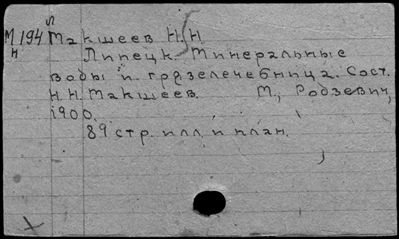 М 194 л Макшеев Н.Н
н Липецк. Минеральные
воды и грязелечебница. Сост.
Н.Н. Макшеев. М., Родзевич,
1900.
89 стр. илл и план.